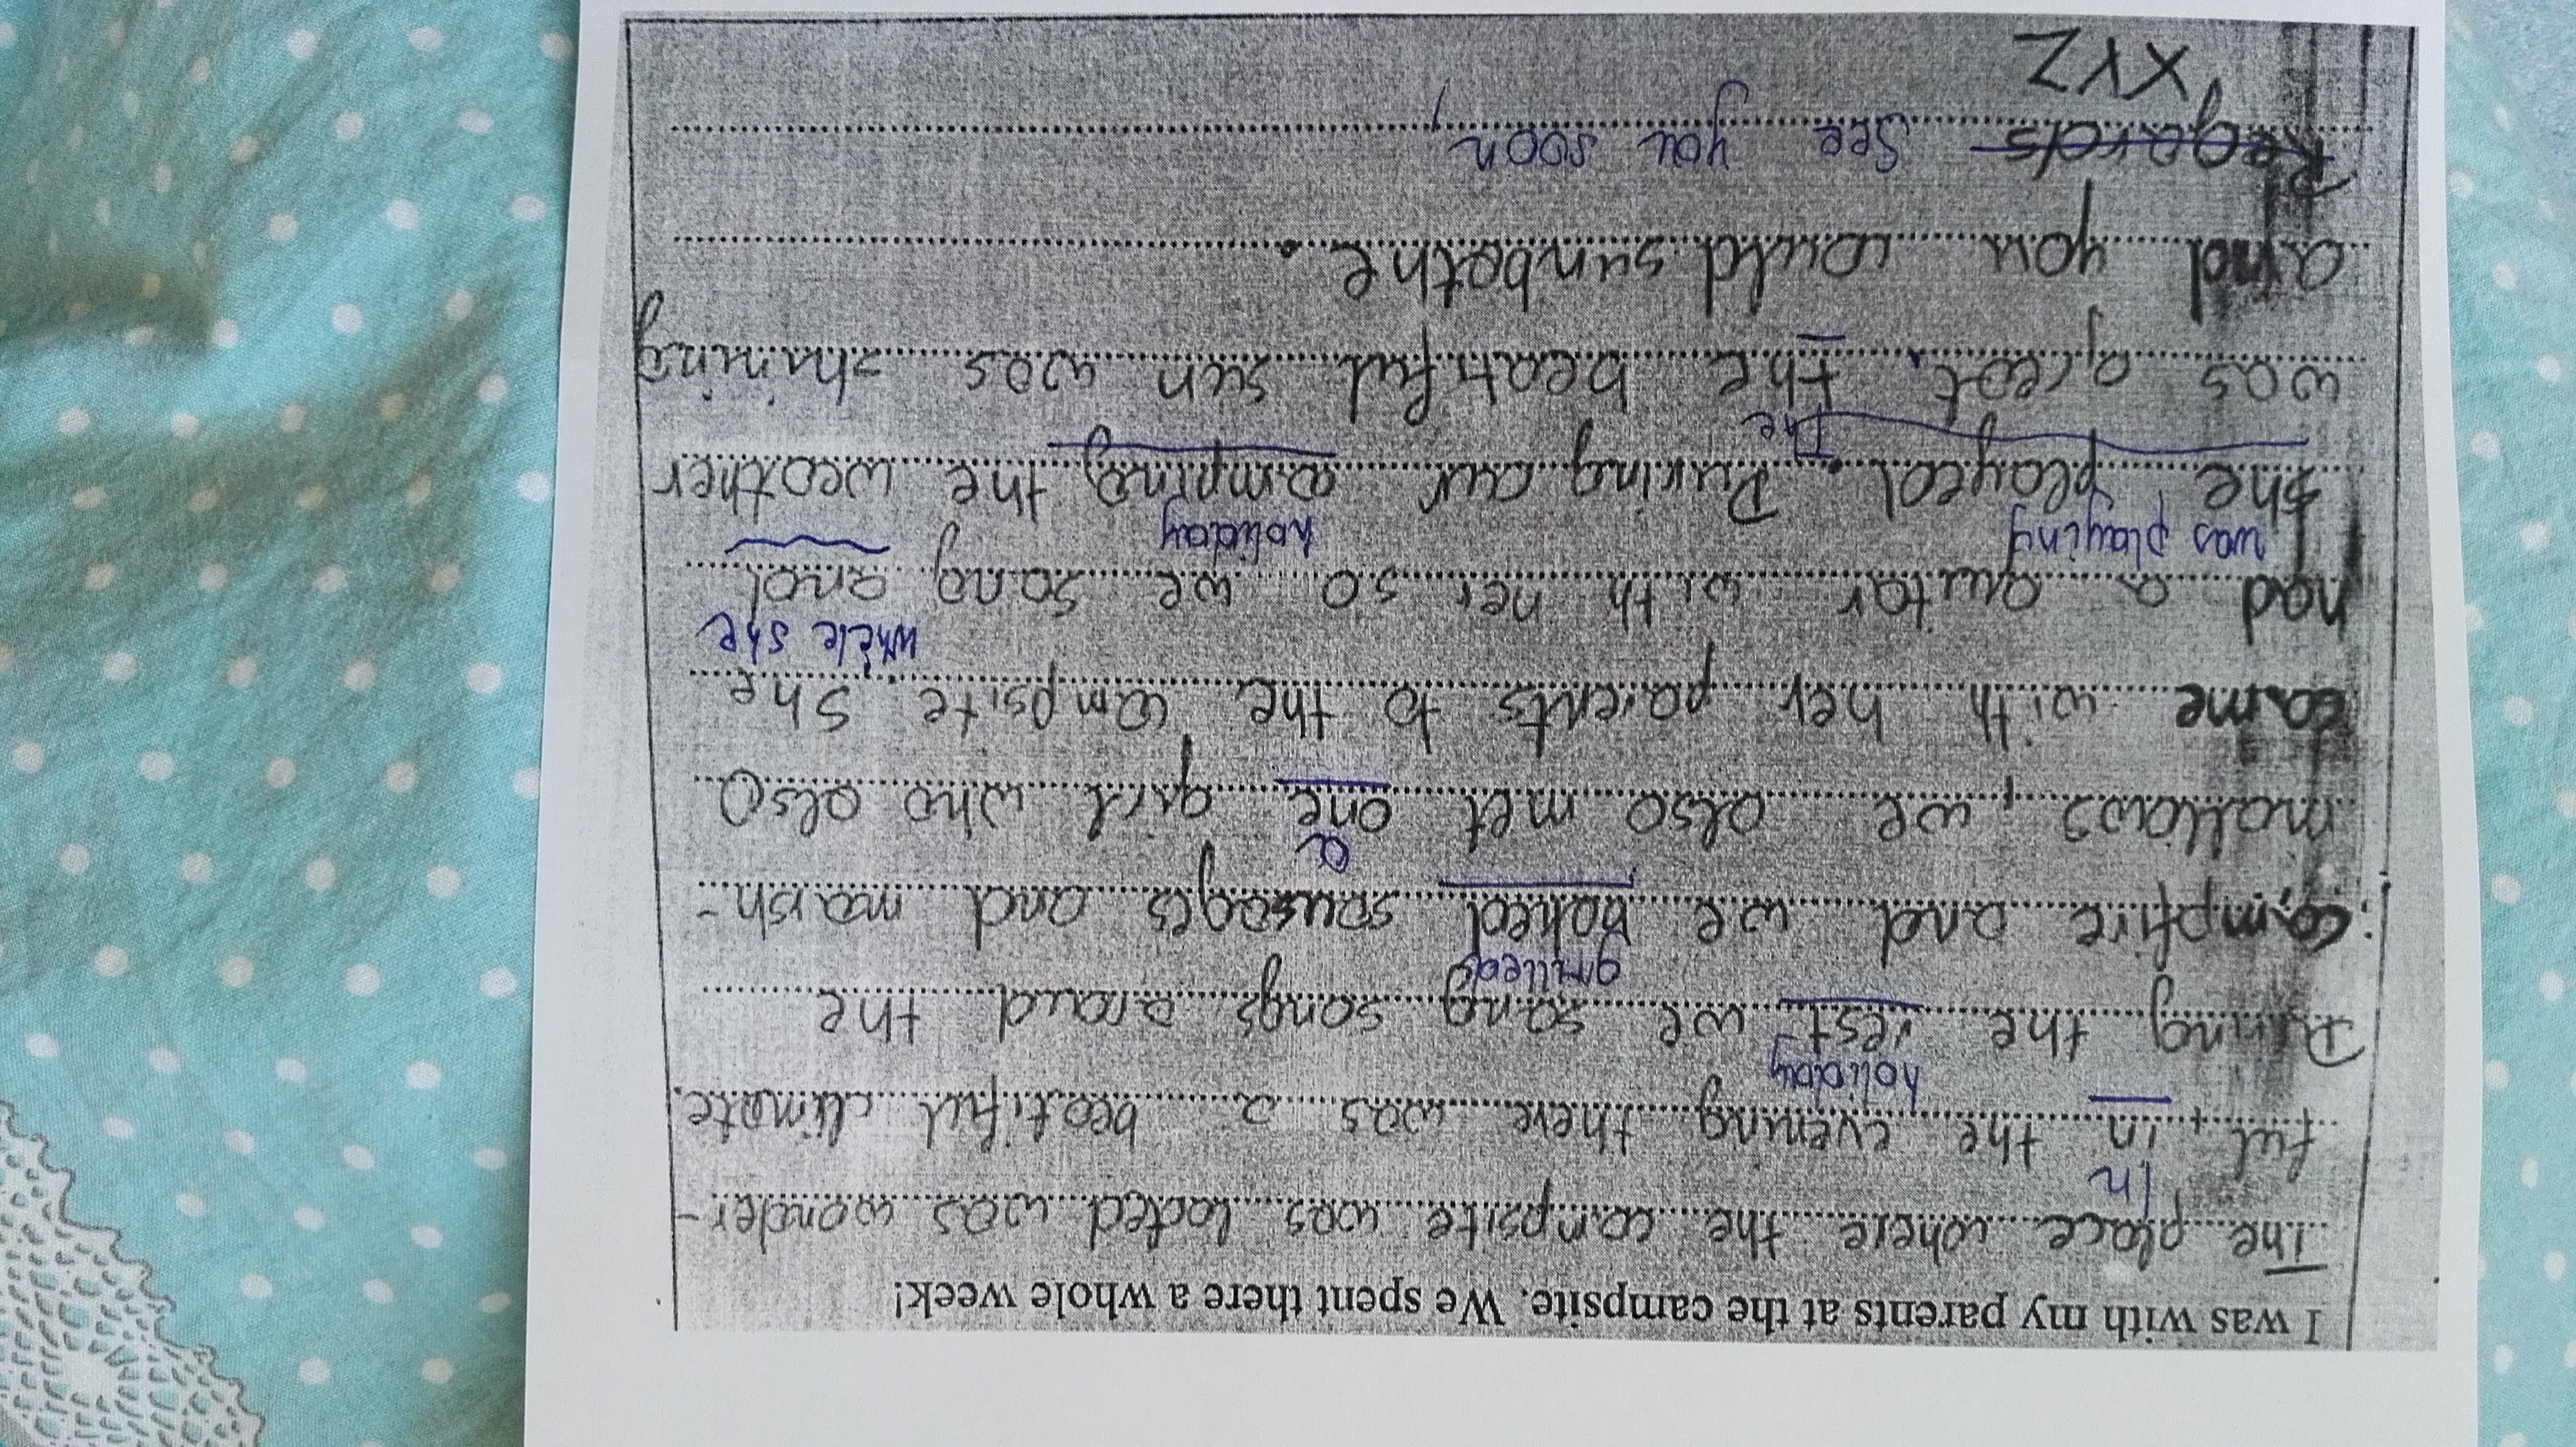 I was with my parents at the campsite. We spent there a whole week!
The place where the campsite was locted was wonder-
In
ful, in the evening there was a beatiful climate.
holiday
During the rest we sang songs araud the
grilled
campfire and we baked sausages and marsh-
a
mallows, we also met one girl who also
came with her parents to the campsite, she
while she
had a guitar with her so we sang and
was playing
holiday
she played. During our camping the weather
The
was great, the beatiful sun was shining
and you could sunbathe.
Regards See you soon,
XYZ